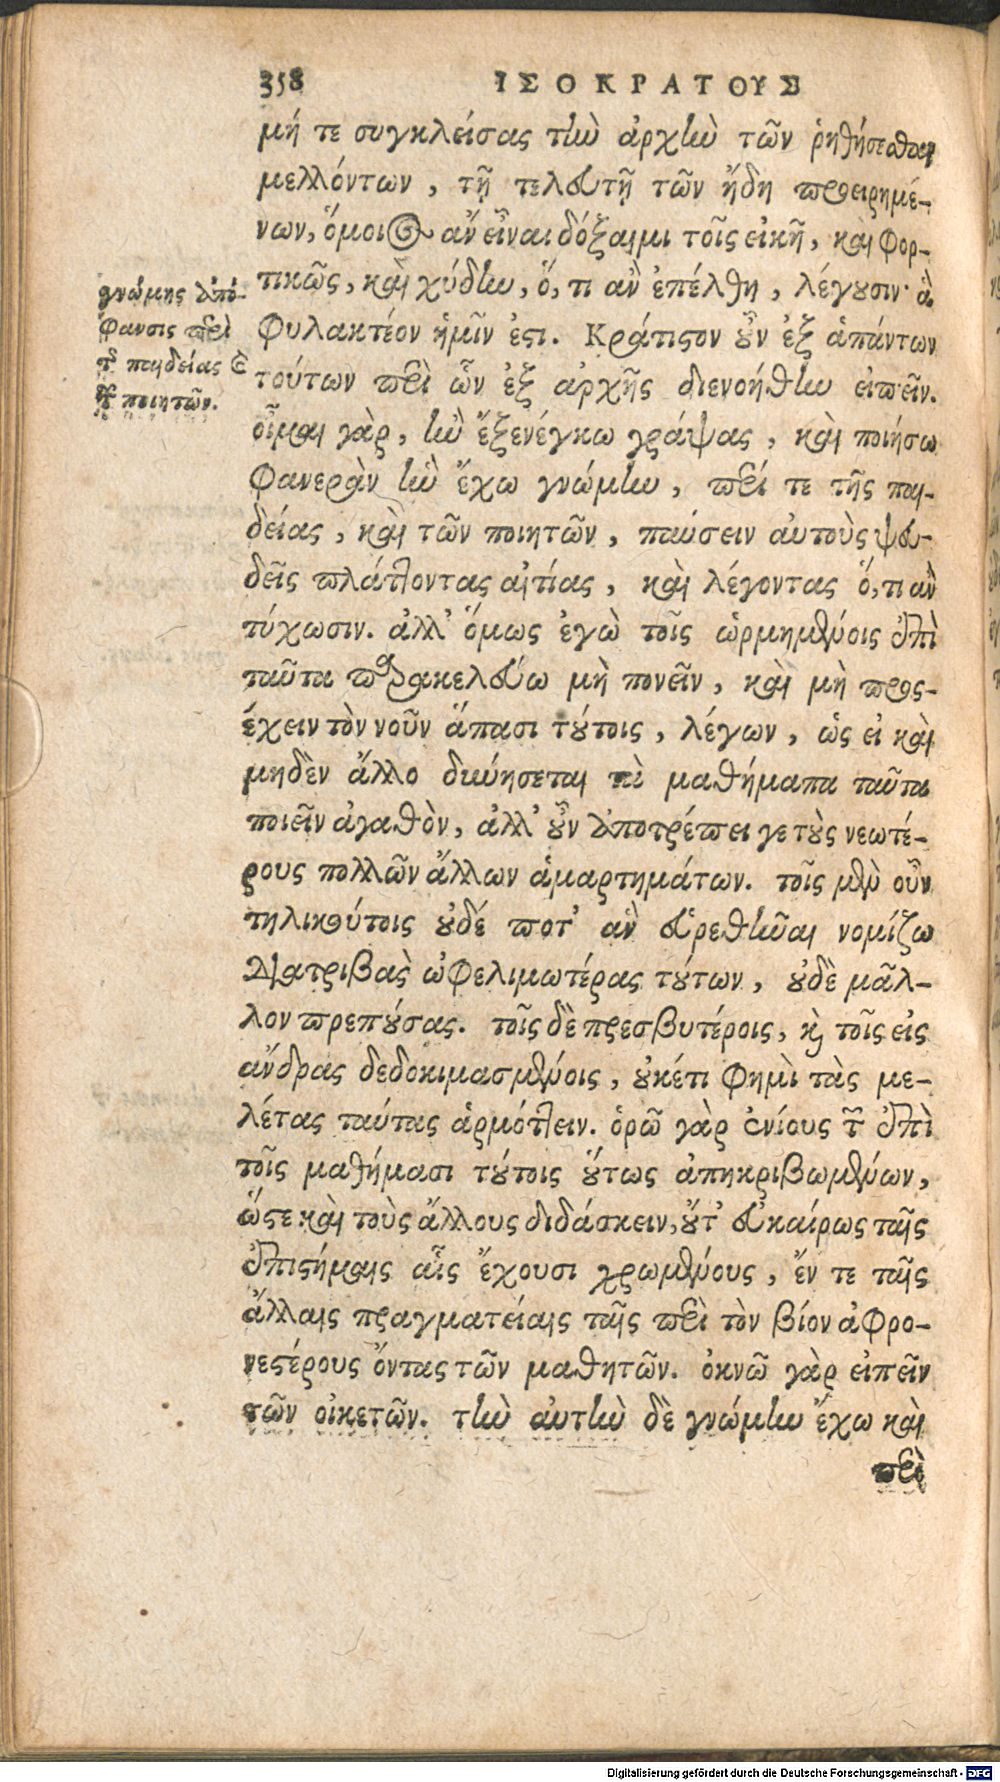 358 ΙΣΟΚΡΑΤΟΥΣ
μή τε συγκλείσας τὴν ἀρχὴν τῶν ῥηθήσεσθαι
μελλόντων, τῇ τελευτῇ τῶν ἤδη προειρημέ-
νων, ὅμοιος ἂν εἶναι δόξαιμι τοῖς εἰκῆ, καὶ φορ-
τικῶς, καὶ χύδην, ὅ, τι ἂν ἐπέλθη, λέγουσιν· ἃ
φυλακτέον ἡμῖν ἐστι. Κράτιστον οὖν ἐξ ἁπάντων
τούτων περὶ ὧν ἐξ ἀρχῆς διενοήθην εἰπεῖν.
οἶμαι γὰρ, ἢν ἔξενέγκω γράψας, καὶ ποιήσω
φανερὰν ἣν ἔχω γνώμην, περί τε τῆς παι-
δείας, καὶ τῶν ποιητῶν, παύσειν αὐτοὺς ψευ-
δεῖς πλάττοντας αἰτίας, καὶ λέγοντας ὅ, τι ἂν
τύχωσιν. ἀλλ' ὅμως ἐγὼ τοῖς ὡρμημένοις ἐπὶ
ταῦτα παρακελεύω μὴ πονεῖν, καὶ μὴ προς-
έχειν τὸν νοῦν ἅπασι τούτοις, λέγων, ὡς εἰ καὶ
μηδὲν ἄλλο δυνήσεται τὰ μαθήματα ταῦτα
ποιεῖν ἀγαθὸν, ἀλλ' οὖν ἀποτρέπει γε τοὺς νεωτέ-
ρους πολλῶν ἄλλων ἁμαρτημάτων. τοῖς μὲν οὖν
τηλικούτοις οὐδέ ποτ' ἂν εὑρεθῆναι νομίζω
διατριβὰς ὠφελιμωτέρας τούτων, οὐδὲ μᾶλ-
λον πρεπούσας. τοῖς δὲ πρεσβυτέροις, καὶ τοῖς εἰς
ἄνδρας δεδοκιμασμένοις, οὐκέτι φημὶ τὰς με-
λέτας ταύτας ἁρμόττειν. ὁρῶ γὰρ ἐνίους τῶν ἐπὶ
τοῖς μαθήμασι τούτοις οὕτως ἀπηκριβωμένων,
ὥστε καὶ τοὺς ἄλλους διδάσκειν, οὔτ' εὐκαίρως ταῖς
ἐπιστήμαις αἷς ἔχουσι χρωμένους, ἔν τε ταῖς
ἄλλαις πραγματείαις ταῖς περὶ τὸν βίον ἀφρο-
νεστέρους ὄντας τῶν μαθητῶν. ὀκνῶ γὰρ εἰπεῖν
τῶν οἰκετῶν. τὴν αὐτὴν δὲ γνώμην ἔχω καὶ
περὶ
γνώμης ἀπό-
φανσις περὶ
τῆς παιδείας καὶ
τῶν ποιητῶν.
Digitalisierung gefördert durch die Deutsche Forschungsgemeinschaft - DFG